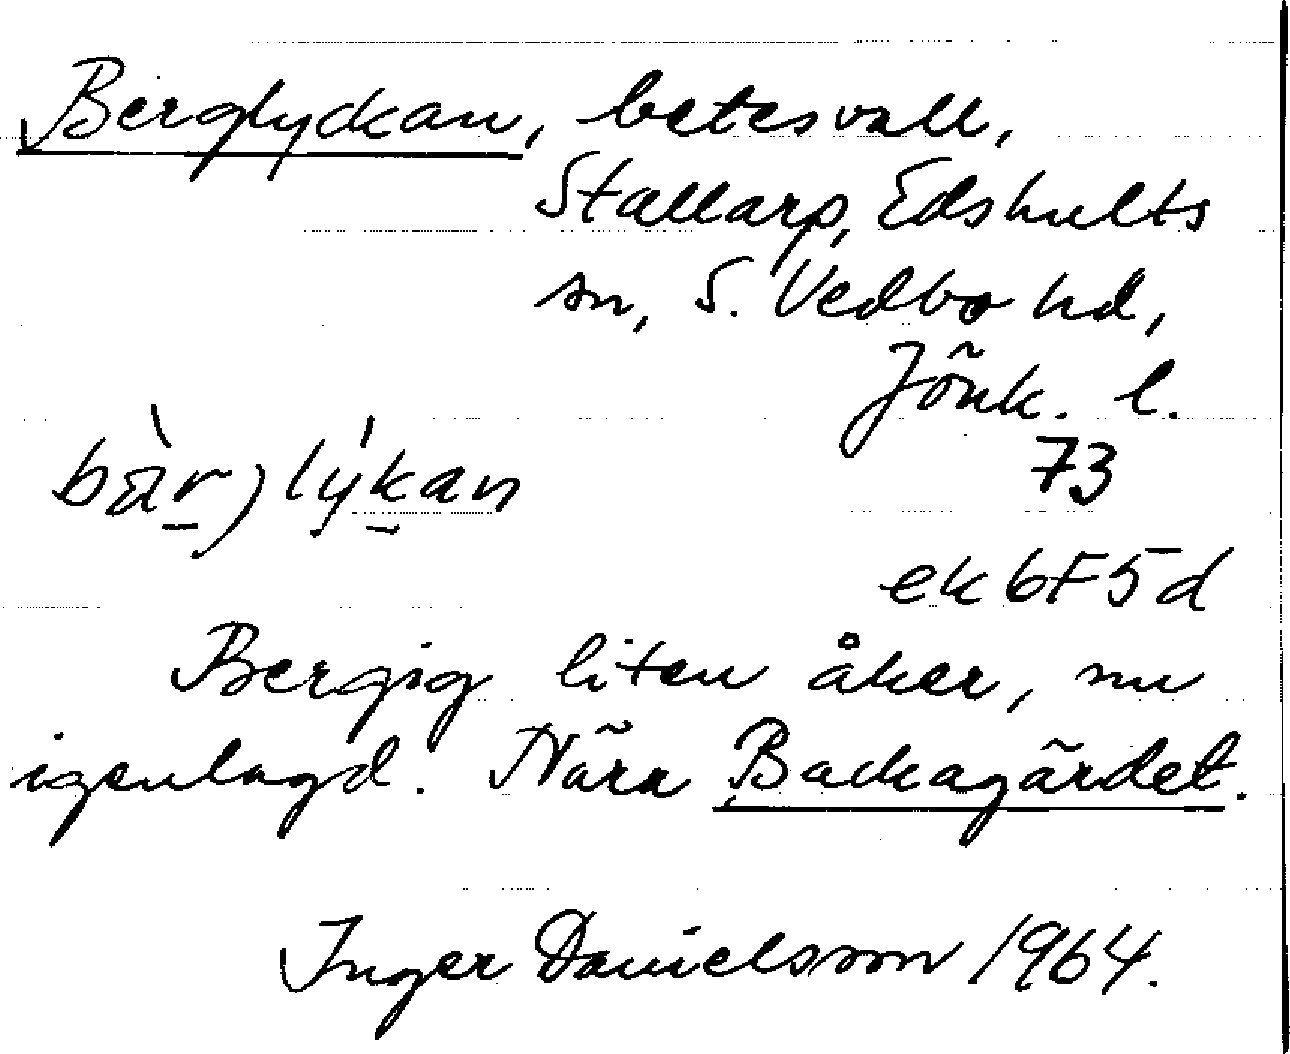 Berglyckan, betesvall,
Stallarp, Edshults
sn, S. Vedbo hd,
Jönk. l.
73
bàr)lýkan
ek 6F5d
Bergig liten åker, nu
igenlagd. Nära Backagärdet.
Inger Danielsson 1964.